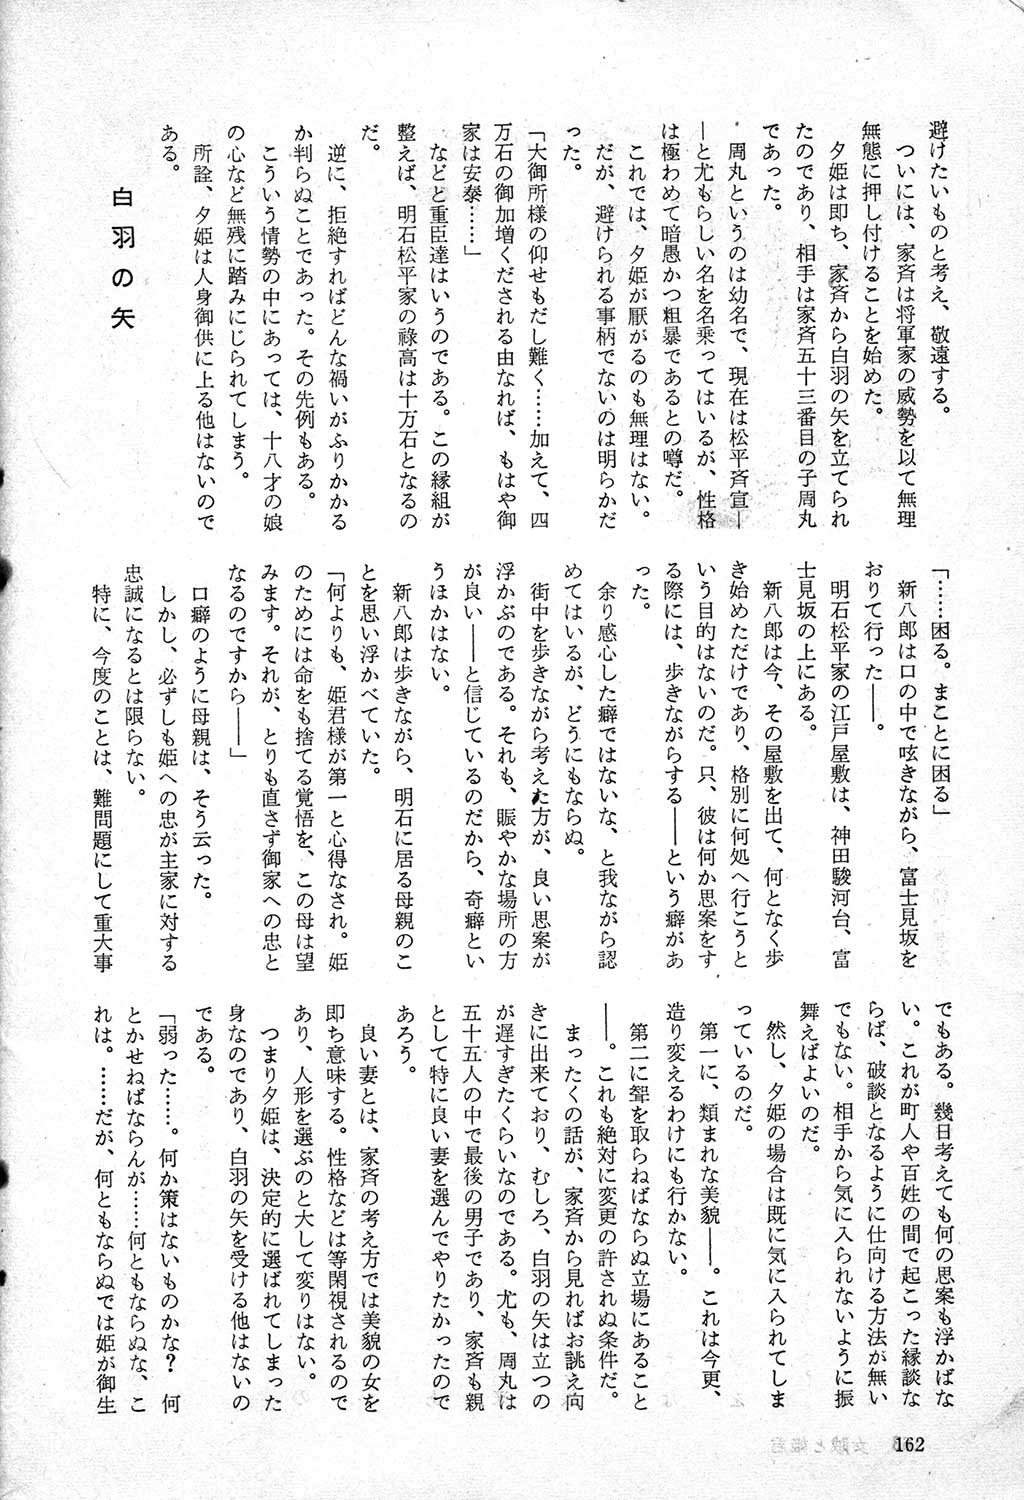 避けたいものと考え、敬遠する。
ついには、家斉は将軍家の威勢を以て無理
無態に押し付けることを始めた。
夕姫は即ち、家斉から白羽の矢を立てられ
たのであり、相手は家斉五十三番目の子周丸
であった。
周丸というのは幼名で、現在は松平斉宣―
―と尤もらしい名を名乗ってはいるが、性格
は極わめて暗愚かつ粗暴であるとの噂だ。
これでは、夕姫が厭がるのも無理はない。
だが、避けられる事柄でないのは明らかだ
った。
「大御所様の仰せもだし難く……加えて、四
万石の御加増くだされる由なれば、もはや御
家は安泰……」
などと重臣達はいうのである。この縁組が
整えば、明石松平家の祿高は十万石となるの
だ。
逆に、拒絶すればどんな禍いがふりかかる
か判らぬことであった。その先例もある。
こういう情勢の中にあっては、十八才の娘
の心など無残に踏みにじられてしまう。
所詮、夕姫は人身御供に上る他はないので
ある。
白羽の矢
「……困る。まことに困る」
新八郎は口の中で呟きながら、富士見坂を
おりて行った――。
明石松平家の江戸屋敷は、神田駿河台、富
士見坂の上にある。
新八郎は今、その屋敷を出て、何となく歩
き始めただけであり、格別に何処へ行こうと
いう目的はないのだ。只、彼は何か思案をす
る際には、歩きながらする――という癖があ
った。
余り感心した癖ではないな、と我ながら認
めてはいるが、どうにもならぬ。
街中を歩きながら考えた方が、良い思案が
浮かぶのである。それも、賑やかな場所の方
が良い――と信じているのだから、奇癖とい
うほかはない。
新八郎は歩きながら、明石に居る母親のこ
とを思い浮かべていた。
「何よりも、姫君様が第一と心得なされ。姫
のためには命をも捨てる覚悟を、この母は望
みます。それが、とりも直さず御家への忠と
なるのですから――」
口癖のように母親は、そう云った。
しかし、必ずしも姫への忠が主家に対する
忠誠になるとは限らない。
特に、今度のことは、難問題にして重大事
でもある。幾日考えても何の思案も浮かばな
い。これが町人や百姓の間で起こった縁談な
らば、破談となるように仕向ける方法が無い
でもない。相手から気に入られないように振
舞えばよいのだ。
然し、夕姫の場合は既に気に入られてしま
っているのだ。
第一に、類まれな美貌――。これは今更、
造り変えるわけにも行かない。
第二に聟を取らねばならぬ立場にあること
――。これも絶対に変更の許されぬ条件だ。
まったくの話が、家斉から見ればお誂え向
きに出来ており、むしろ、白羽の矢は立つの
が遅すぎたくらいなのである。尤も、周丸は
五十五人の中で最後の男子であり、家斉も親
として特に良い妻を選んでやりたかったので
あろう。
良い妻とは、家斉の考え方では美貌の女を
即ち意味する。性格などは等閑視されるので
あり、人形を選ぶのと大して変りはない。
つまり夕姫は、決定的に選ばれてしまった
身なのであり、白羽の矢を受ける他はないの
である。
「弱った……。何か策はないものかな？　何
とかせねばならんが……何ともならぬな、こ
れは。……だが、何ともならぬでは姫が御生
162